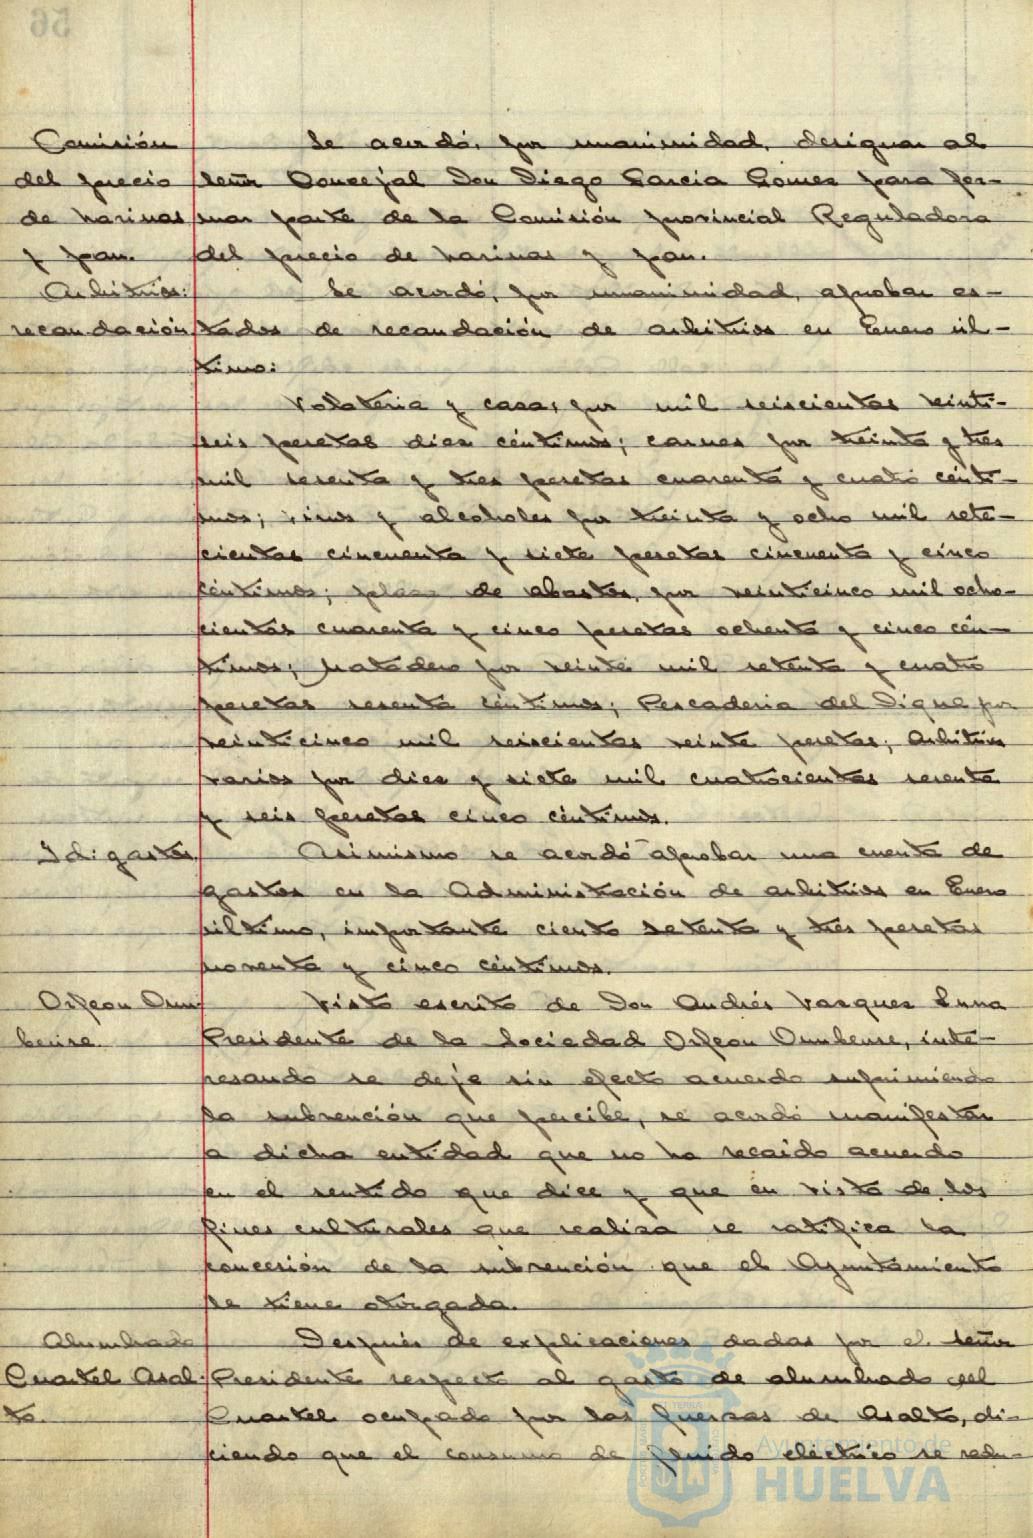 56
Comisión
del precio
de harinas
y pan.
Se acordó, por unanimidad, designar al
señor Concejal Don Diego Garcia Gomez para for-
mar parte de la Comisión provincial Reguladora
del precio de harinas y pan.
Arbitrios:
recaudación
Se acordó, por unanimidad, aprobar es-
tados de recaudación de arbitrios en Enero úl-
timo:
Volateria y casa, por mil seiscientas veinti-
seis pesetas diez céntimos; carnes por treinta y tres
mil sesenta y tres pesetas cuarenta y cuatro cénti-
mos; vinos y alcoholes por treinta y ocho mil sete-
cientas cincuenta y siete pesetas cincuenta y cinco
céntimos; plaza de abastos, por veinticinco mil ocho-
cientas cuarenta y cinco pesetas ochenta y cinco cén-
timos; Matadero por veinte mil setenta y cuatro
pesetas sesenta céntimos; Pescaderia del Dique por
veinticinco mil seiscientas veinte pesetas; Arbitrios
varios por diez y siete mil cuatrocientas sesenta
y seis pesetas cinco céntimos.
Id: gastos.
Asimismo se acordó aprobar una cuenta de
gastos en la Administración de arbitrios en Enero
último, importante ciento setenta y tres pesetas
noventa y cinco céntimos.
Orfeon Onu-
bense.
Visto escrito de Don Andrés Vazquez Luna
Presidente de la Sociedad Orfeon Onubense, inte-
resando se deje sin efecto acuerdo suprimiendo
la subvención que percibe, se acordó manifestar
a dicha entidad que no ha recaido acuerdo
en el sentido que dice y que en vista de los
fines culturales que realiza se ratifica la
concesión de la subvención que el Ayuntamiento
le tiene otorgada.
Alumbrado
Cuartel Asal-
to.
Después de explicaciones dadas por el señor
Presidente respecto al gasto de alumbrado del
Cuartel ocupado por las fuerzas de Asalto, di-
ciendo que el consumo de fluido eléctrico se redu-
Ayuntamiento de
HUELVA